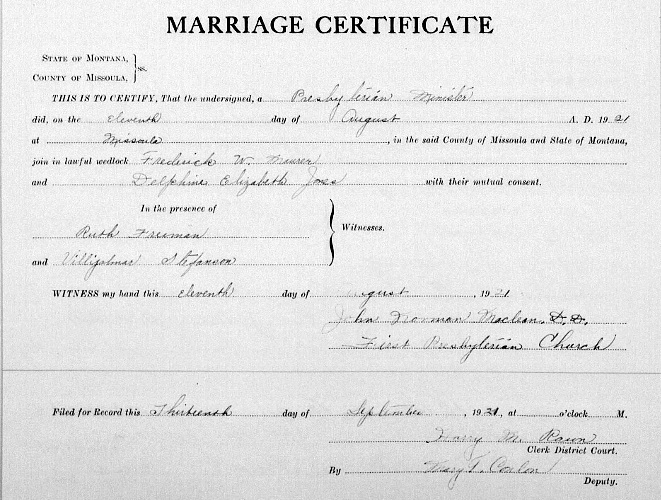 MARRIAGE CERTIFICATE
STATE OF MONTANA,
COUNTY OF MISSOULA, } ss.
THIS IS TO CERTIFY, That the undersigned, a Presbyterian Minister
did, on the eleventh day of August A. D. 1921
at Missoula, in the said County of Missoula and State of Montana,
join in lawful wedlock Frederick W. Maurer
and Delphine Elizabeth Jones with their mutual consent.
In the presence of
Ruth Freeman
and Villijalmar Stefanson } Witnesses.
WITNESS my hand this eleventh day of August, 1921
John Norman Maclean, D.D.
First Presbyterian Church
Filed for Record this Thirteenth day of September, 1921, at o'clock M.
Harry M. Rawn
Clerk District Court.
By Mary T. Conlon
Deputy.